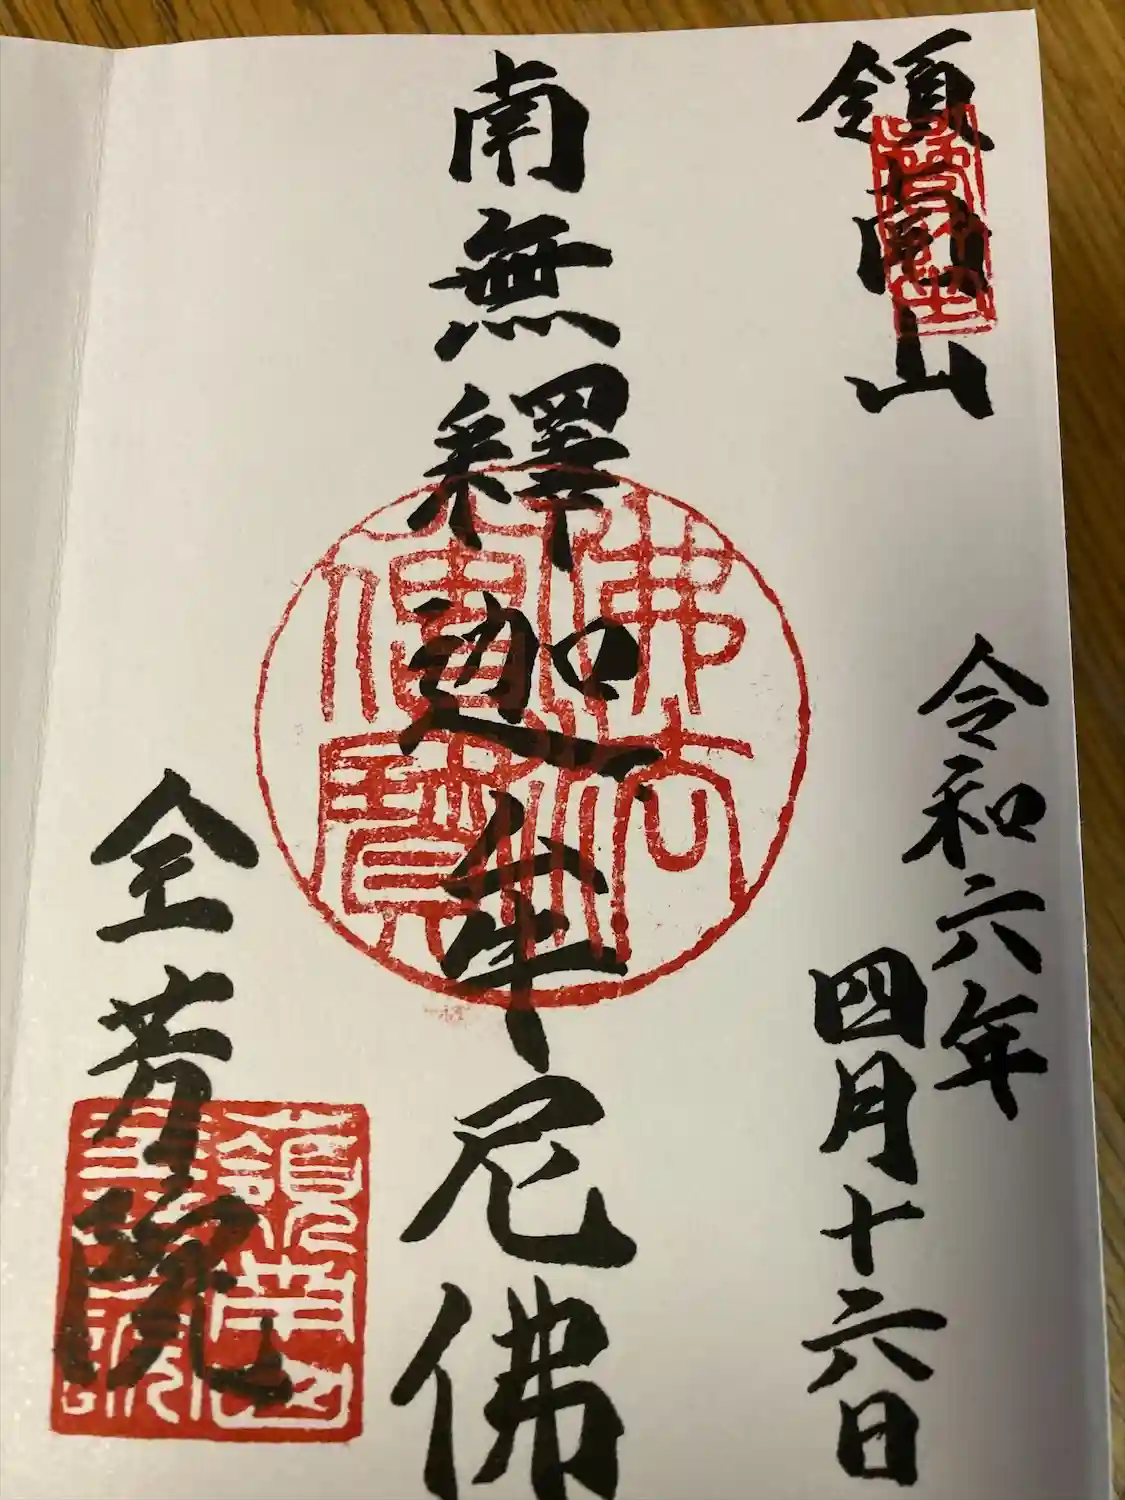 領南山
令和六年
四月十六日
南無釋迦牟尼佛
佛法僧寶
全芳院